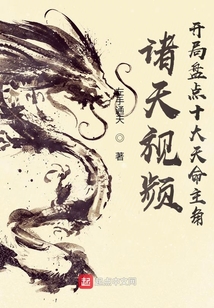 开局盘点十大天命主角
诸天视频
左手通天
◎著
起点中文网